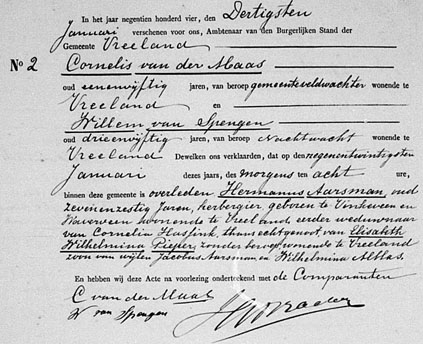 In het jaar negentien honderd vier, den Dertigsten
Januari verschenen voor ons, Ambtenaar van den Burgerlijken Stand der
Gemeente Vreeland
No 2 Cornelis van der Maas
oud eenenvijftig jaren, van beroep gemeenteveldwachter wonende te
Vreeland en
Willem van Spengen
oud drieenvijftig jaren, van beroep Nachtwacht wonende te
Vreeland Dewelken ons verklaarden, dat op den negenentwintigsten
Januari dezes jaars, des morgens ten acht ure,
binnen deze gemeente is overleden Hermanus Aarsman, oud
zevenenzestig Jaren, herbergier, geboren te Vinkeveen en
Waverveen wonende te Vreeland, eerder weduwnaar
van Cornelia thans echtgenoot van Elisabeth
Wilhelmina zonder beroep wonende te Vreeland
zoon van wijlen Jacobus Aarsman en Wilhelmina
En hebben wij deze Acte na voorlezing onderteekend met de Comparanten
C van der Maas
W van Spengen